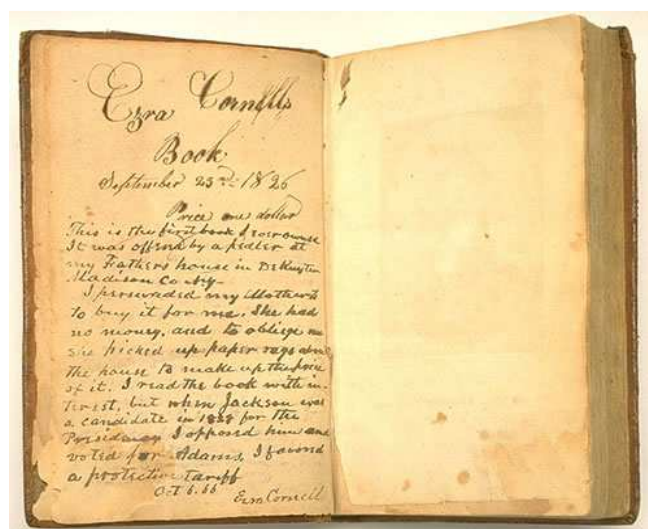 Ezra Cornells
Book
September 23rd 1826
Price one dollar
This is the first book I ever owned
It was offerd by a pedler at
my Fathers house in DeRuyter
Madison County
I perswaded my Mother to
to buy it for me. She had
no money, and to obliege me
she picked up paper rags about
the house to make up the price
of it. I read the book with in-
terest, but when Jackson was
a candidate in 1828 for the
Presidency I opposed him and
voted for Adams, I favored
a protective tariff
Oct 6. 66
Ezra Cornell